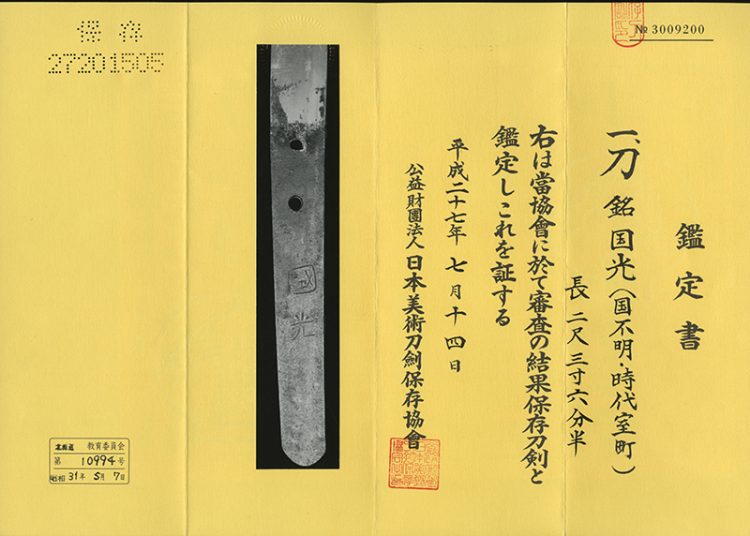 № 3009200
鑑定書
一、刀 銘 国光(国不明・時代室町)
長 二尺三寸六分半
右は當協會に於て審査の結果保存刀剣と
鑑定しこれを証する
平成二十七年 七月十四日
公益財團法人 日本美術刀劍保存協會
國光
保存
27201505
北海道 教育委員会
第 10994 号
昭和 31年 5月 7日